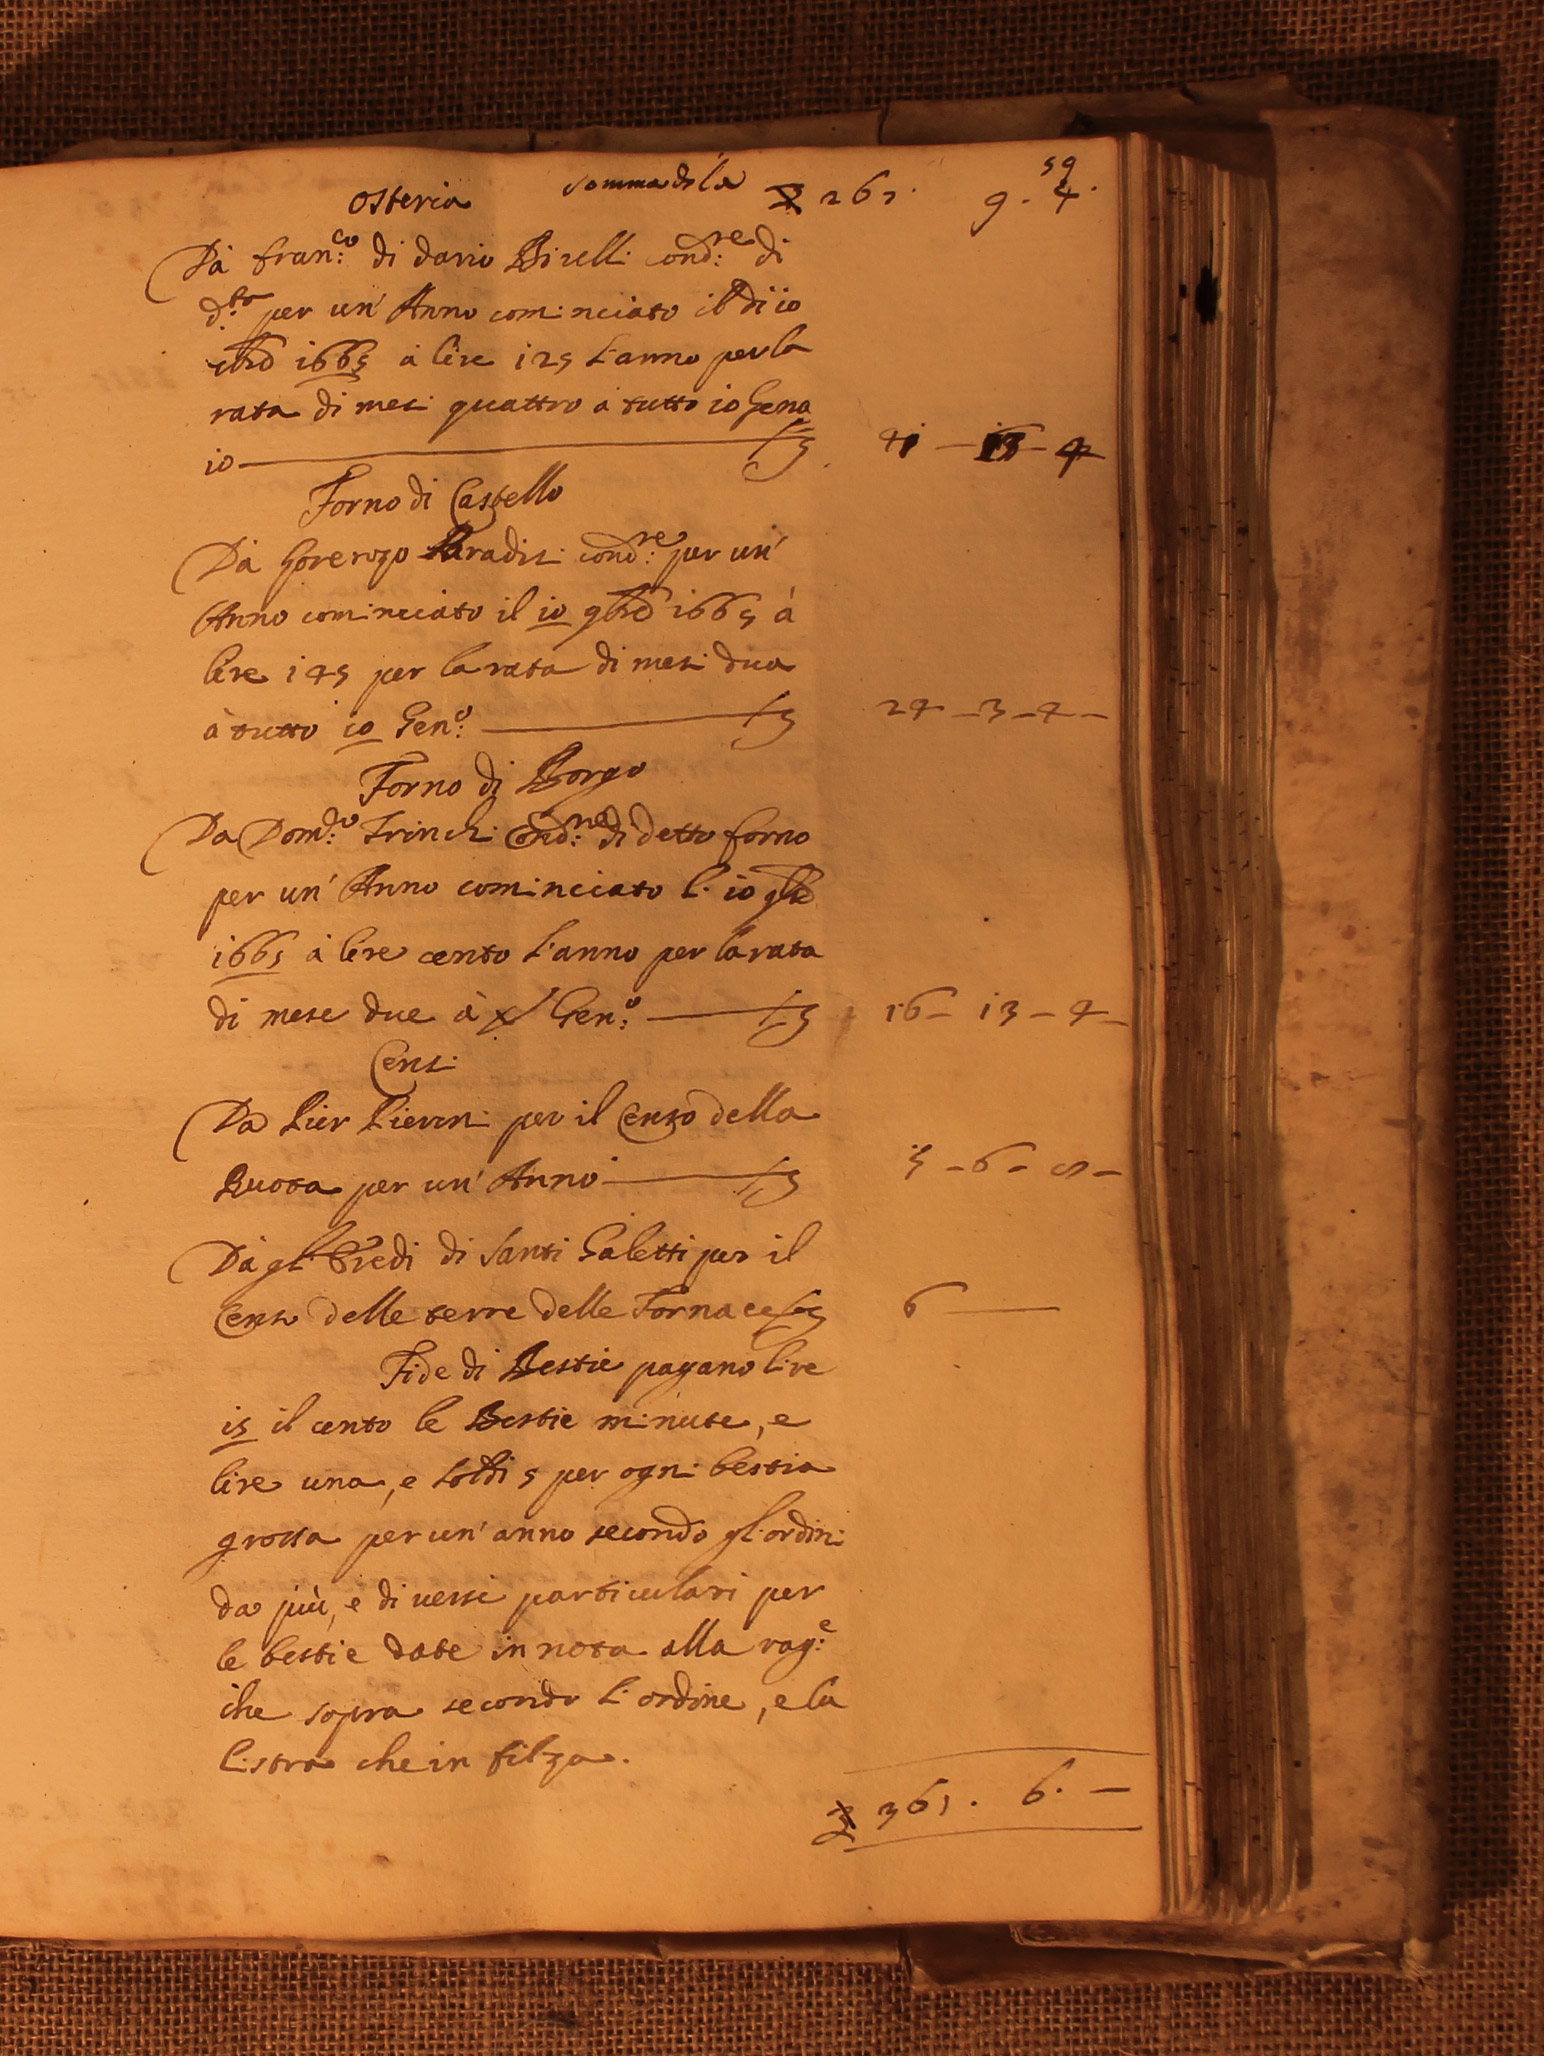 59
Somma di là ₤ 267. 9. 4.
Osteria
Dà Fran:co di Dario Birelli cond:re di
d:to per un' Anno cominciato il dì 10
7bre 1665 à lire 125 l'anno per la
rata di mesi quattro à tutto 10 Gena
io ₤ 41 - 13 - 4
Forno di Castello
Dà Paradisi cond:re per un'
Anno cominciato il 10 9bre 1665 à
lire 145 per la rata di mesi dua
à tutto 10 Gen:o ₤ 24 - 3 - 4 -
Forno di Borgo
Da Dom:co Trinci Cond:re di detto forno
per un' Anno cominciato li 10 9bre
1665 à lire cento l'anno per la rata
di mese due à X Gen:o ₤ 16 - 13 - 4 -
Censi
Da Pier Pierini per il Censo della
Ruota per un' Anno ₤ 5 - 6 - 8 -
Dà gl' Eredi di Santi Galetti per il
Censo delle terre delle Fornace ₤ 6
Fide di Bestie pagano lire
15 il cento le Bestie minute, e
lire una, e soldi 5 per ogni bestia
grossa per un' anno secondo gl'ordini
da più, e diversi particulari per
le bestie date in nota alla rag:e
che sopra secondo l'ordine, e la
listra che in filza.
₤ 361. 6. —